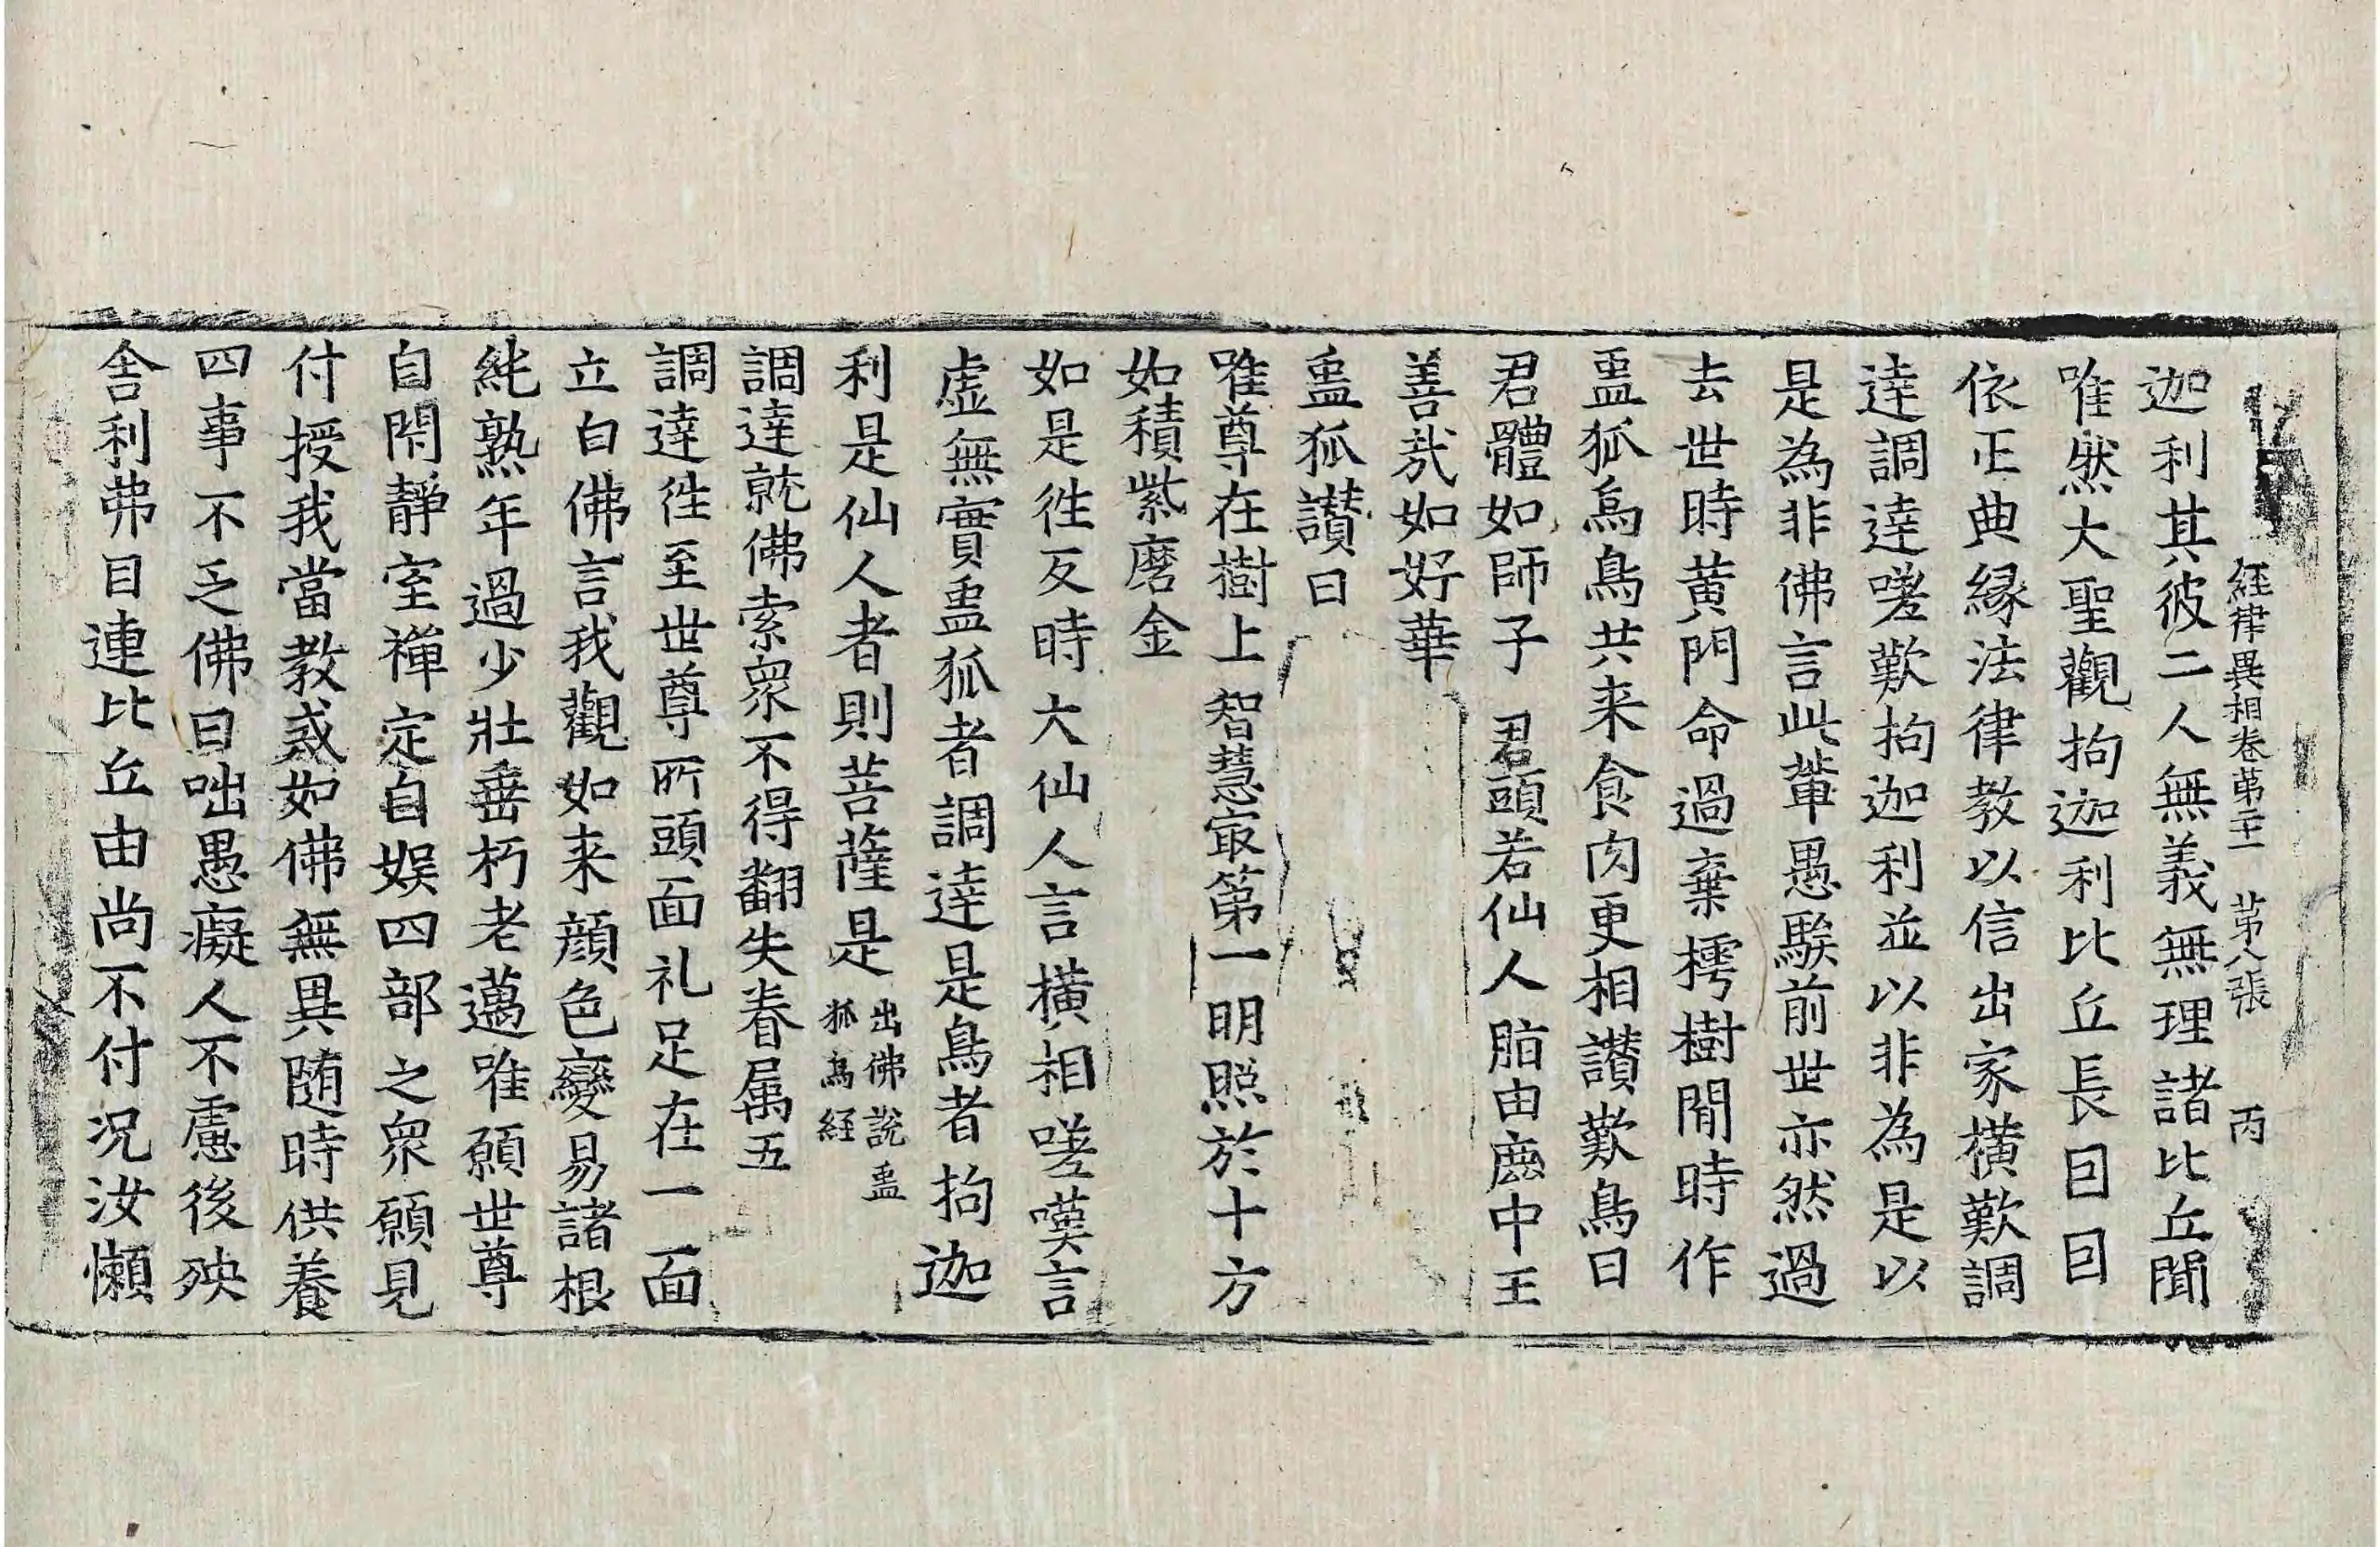 經律異相卷苐二十一 苐八張 丙
迦利其彼二人無義無理諸比丘聞
唯然大聖觀拘迦利比丘長囙囙
依正典縁法律教以信出家橫歎調
達調達嗟歎拘迦利並以非為是以
是為非佛言此輩愚騃前世亦然過
去世時黃門命過棄樗樹閒時作
蛊狐烏鳥共来食肉更相讃歎鳥曰
君體如師子 君頭若仙人 脂由麁中王
善哉如好華
蛊狐讃曰
唯尊在樹上 智慧㝡第一 明照於十方
如積紫磨金
如是徃反時大仙人言橫相嗟嘆言
虛無實蛊狐者調達是鳥者拘迦
利是仙人者則菩薩是 出佛說蛊
狐烏經
調達就佛索眾不得翻失眷属五
調達徃至世尊所頭面礼足在一面
立白佛言我觀如来顔色變易諸根
純熟年過少壯垂朽老邁唯願世尊
自閑靜室禪定自娱四部之眾願見
付授我當教誡如佛無異随時供養
四事不乏佛曰咄愚癡人不慮後殃
舎利弗目連比丘由尚不付况汝懶